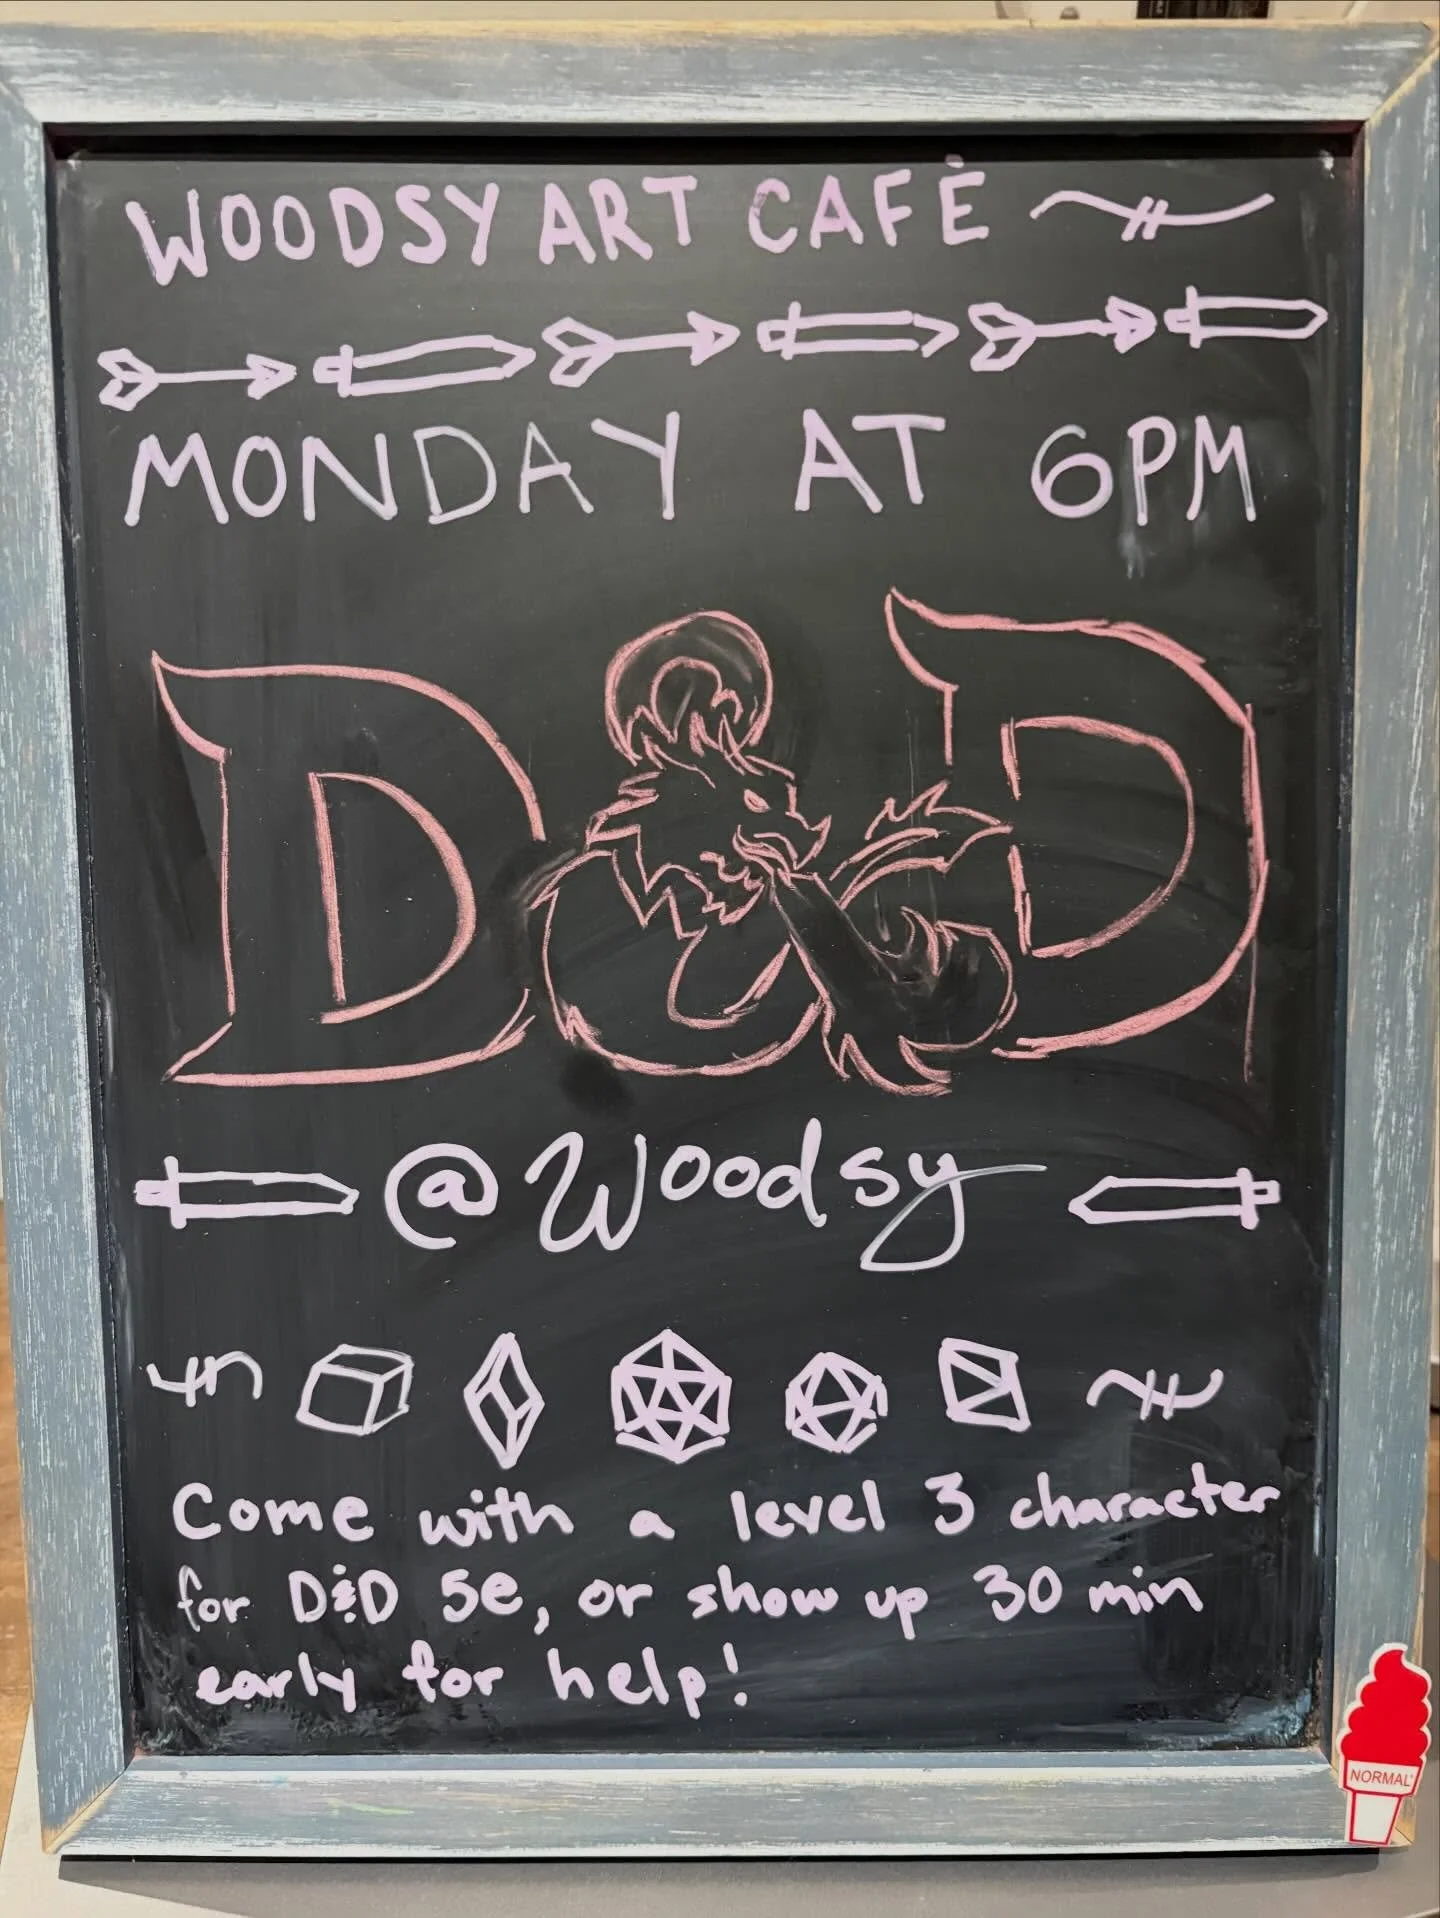 WOODSY ART CAFÉ
MONDAY AT 6PM
D&D
@Woodsy
Come with a level 3 character
for D&D 5e, or show up 30 min
early for help!
NORMAL